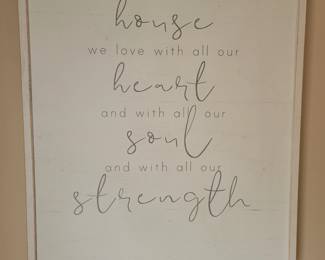 house
we love with all our
heart
and with all our
soul
and with all our
strength